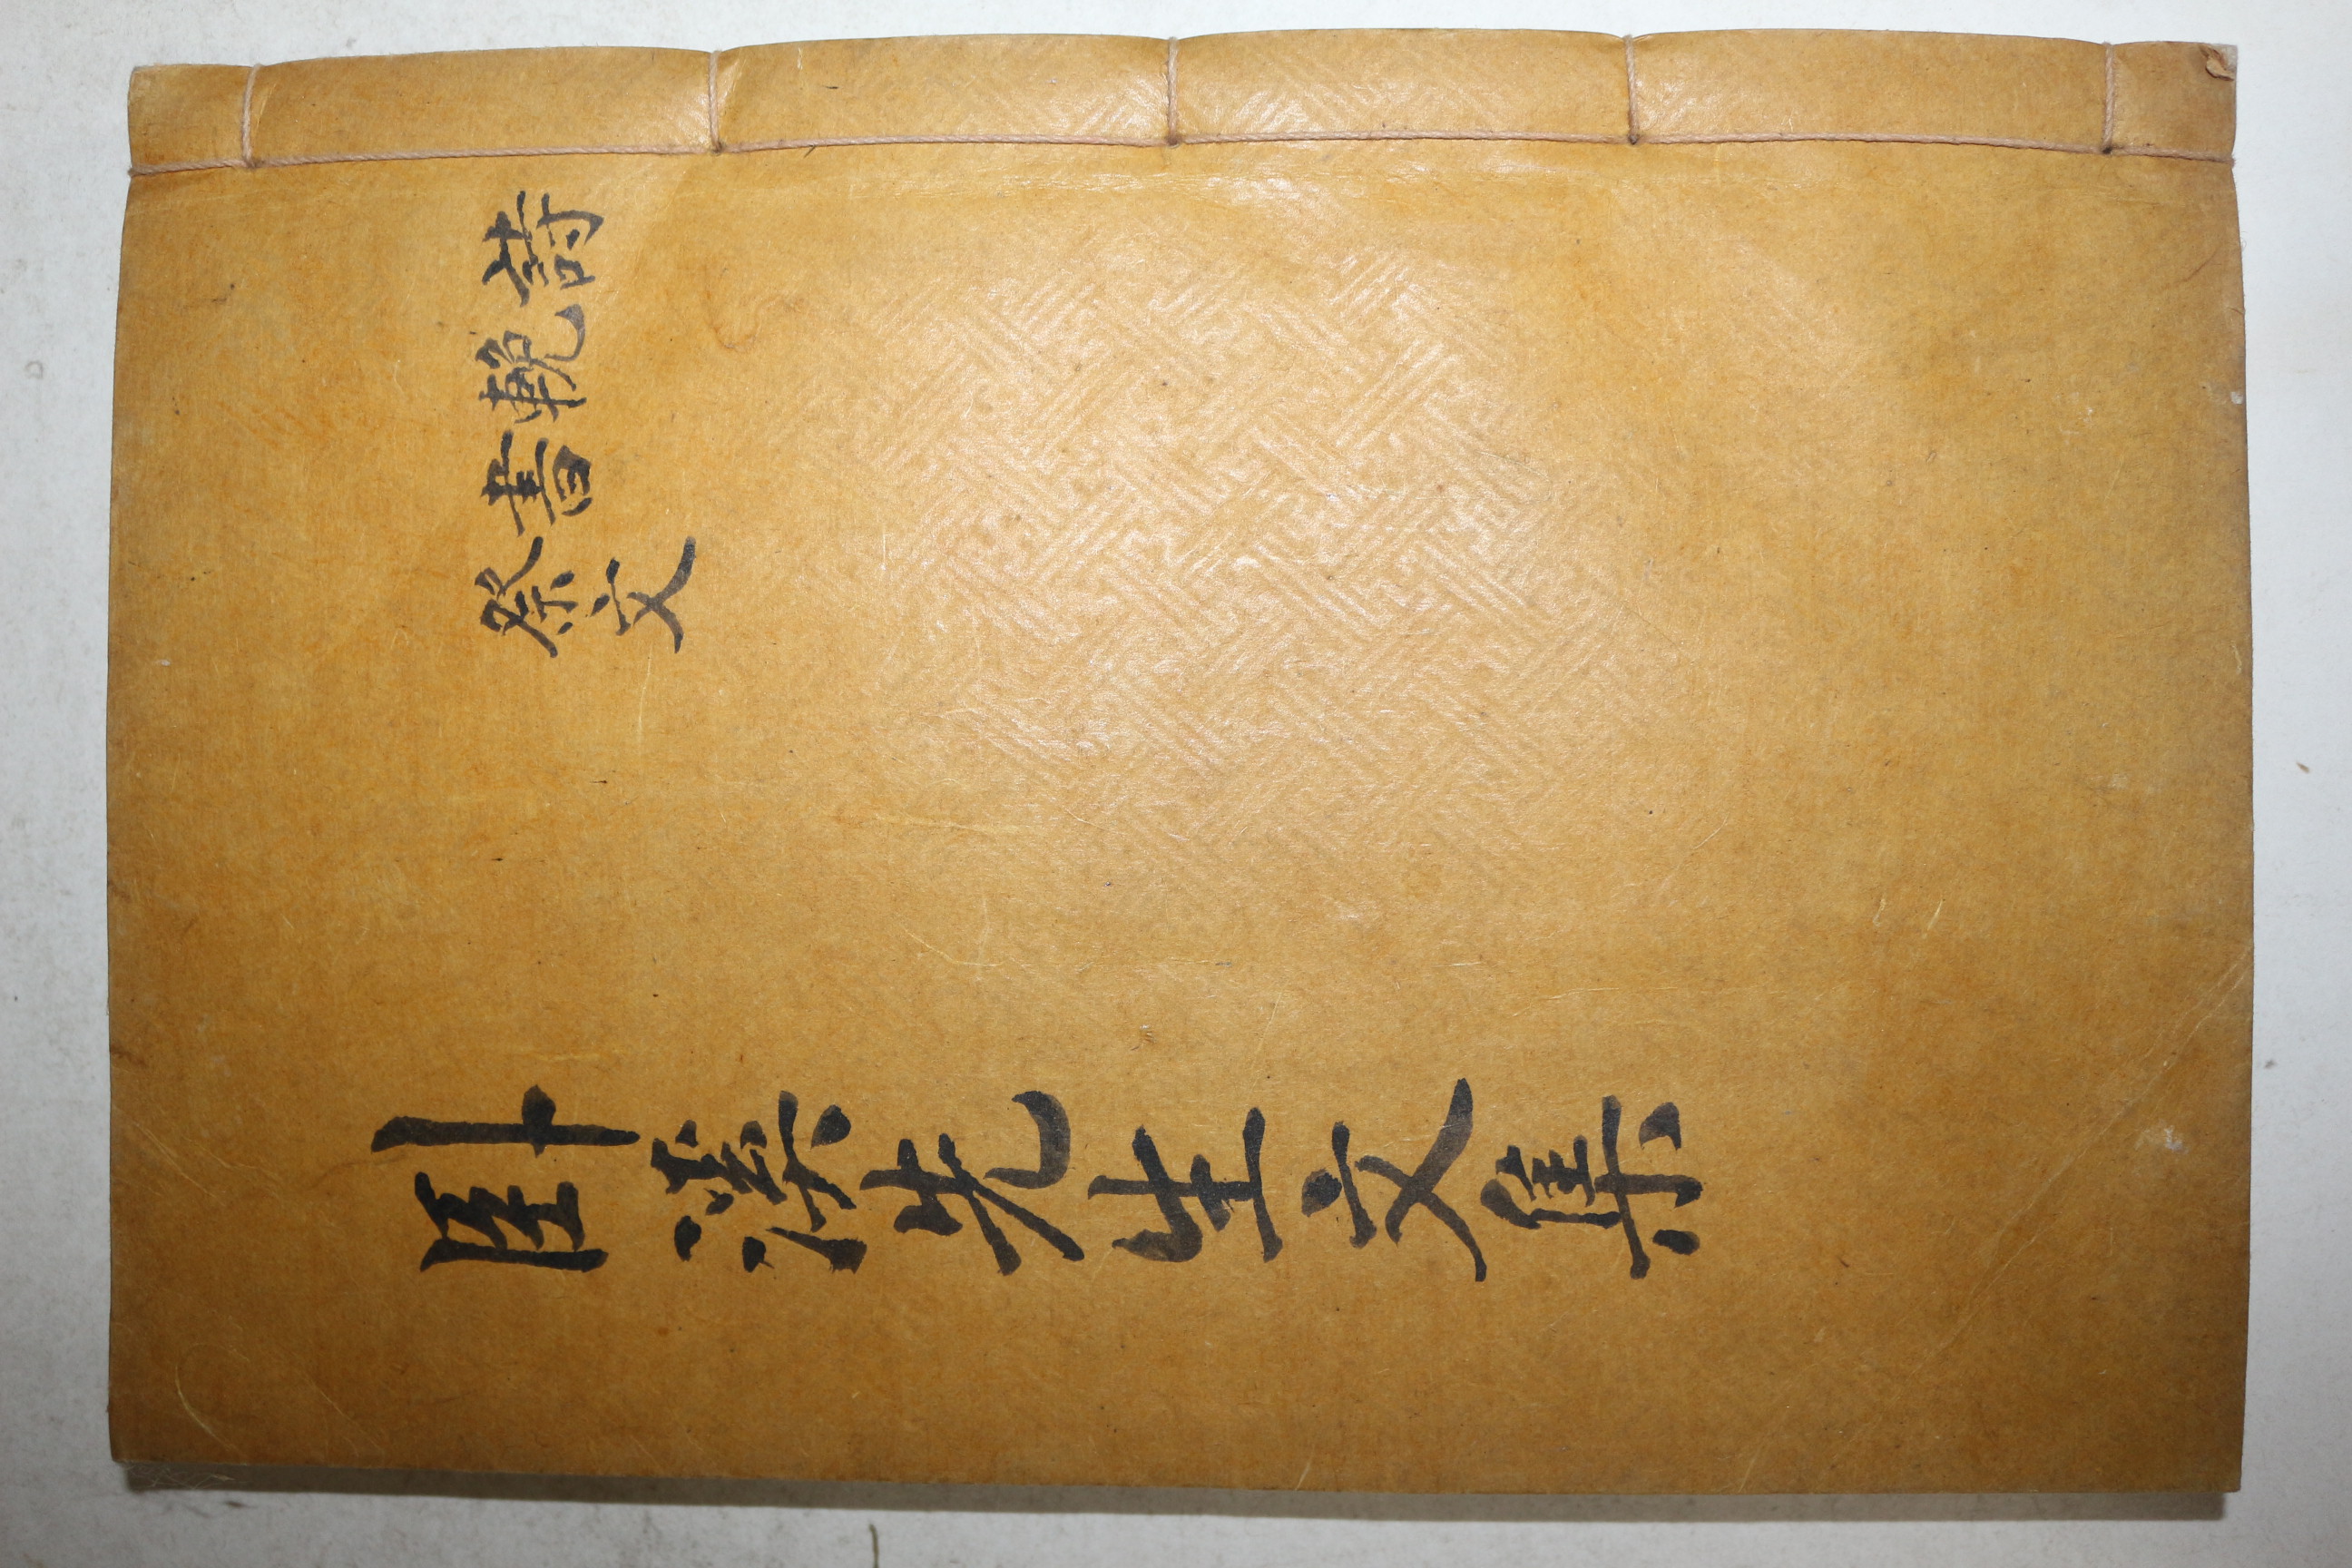 詩
輓
書
祭文
臥溪先生文集